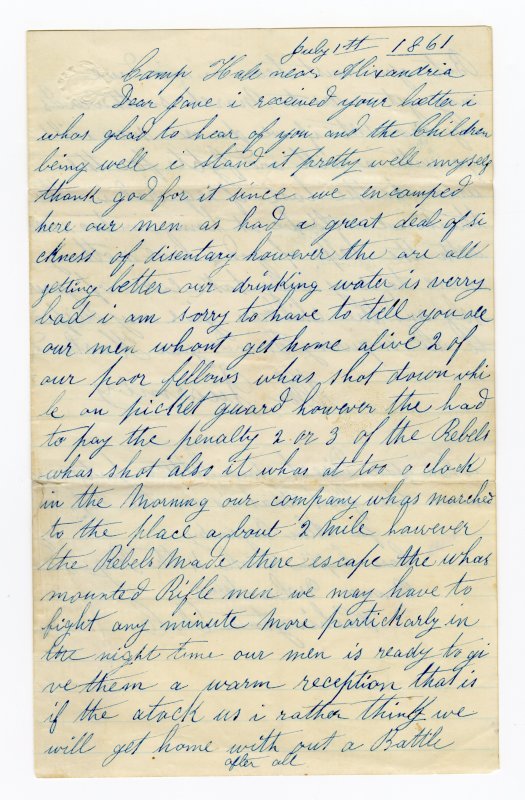 July 1th 1861
Camp Hale near Alixandria
Dear Jane i received your letter i
whas glad to hear of you and the Children
being well i stand it pretty well myself
thank god for it since we encamped
here our men as had a great deal of si
ckness of disentary however the are all
getting better our drinking water is verry
bad i am sorry to have to tell you all
our men whont get home alive 2 of
our poor fellows whas shot down whi
le on picket guard however the had
to pay the penalty 2 or 3 of the Rebels
whas shot also it whas at too o clock
in the Morning our company whas marched
to the place a bout 2 Mile however
the Rebels Made there escape the whas
mounted Rifle men we may have to
fight any minute More partickarly in
the night time our men is ready to gi
ve them a warm reception that is
if the atack us i rather think we
will get home with out a Battle
after all